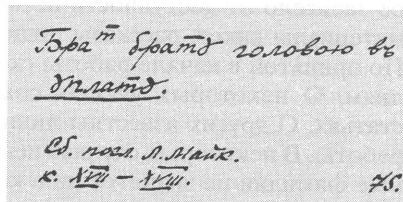 Браᵐ братꙋ головою въ
ꙋплатꙋ.
Сб. посл. Л. Майк.
к. XVII – XVIII. 75.